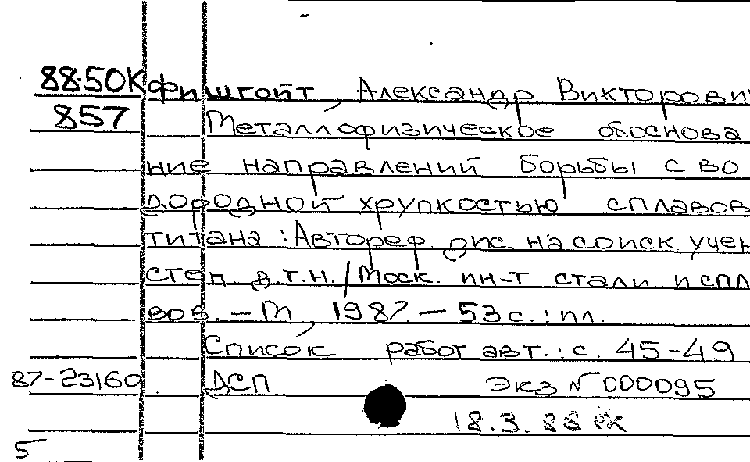 88.50К Фишгойт, Александр Викторович
857 Металлофизическое обоснова
ние направлений борьбы с во
дородной хрупкостью сплавов
титана : Автореф. дис. на соиск. учен
степ. д.т.н. / Моск. ин-т стали и спл
вов. — М, 1987. — 53 с. : ил.
Список работ авт.: с. 45-49
87-23160 ДСП Экз № 000095
18.3.88
5